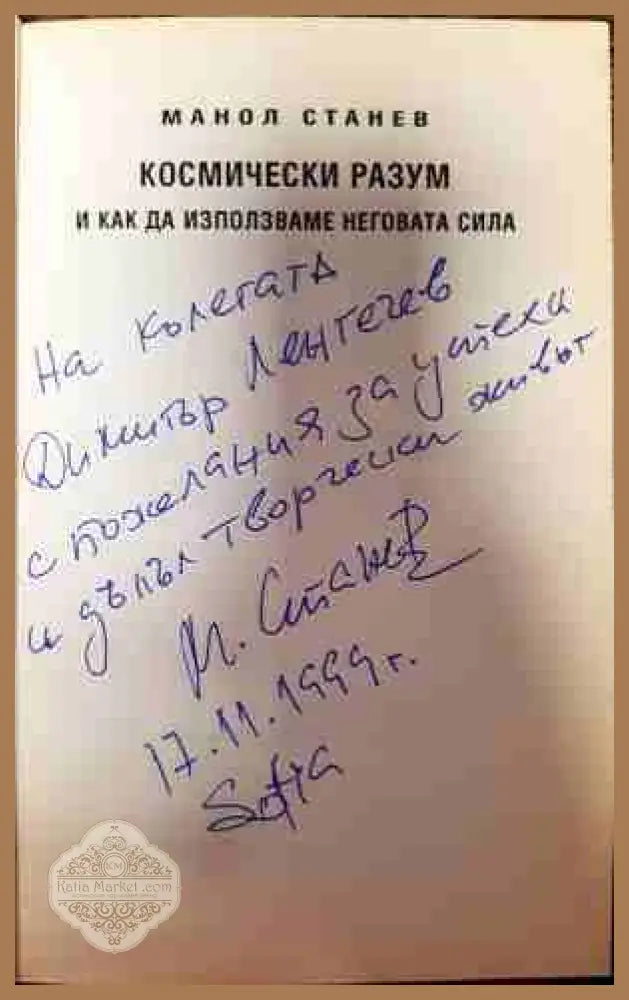 МАНОЛ СТАНЕВ
КОСМИЧЕСКИ РАЗУМ
И КАК ДА ИЗПОЛЗВАМЕ НЕГОВАТА СИЛА
На колегата
Димитър Ленгечев
с пожелания за успехи
и дълъг творчески живот
М. Станев
17.11.1999 г.
Sofia
KM
Katia Market.com